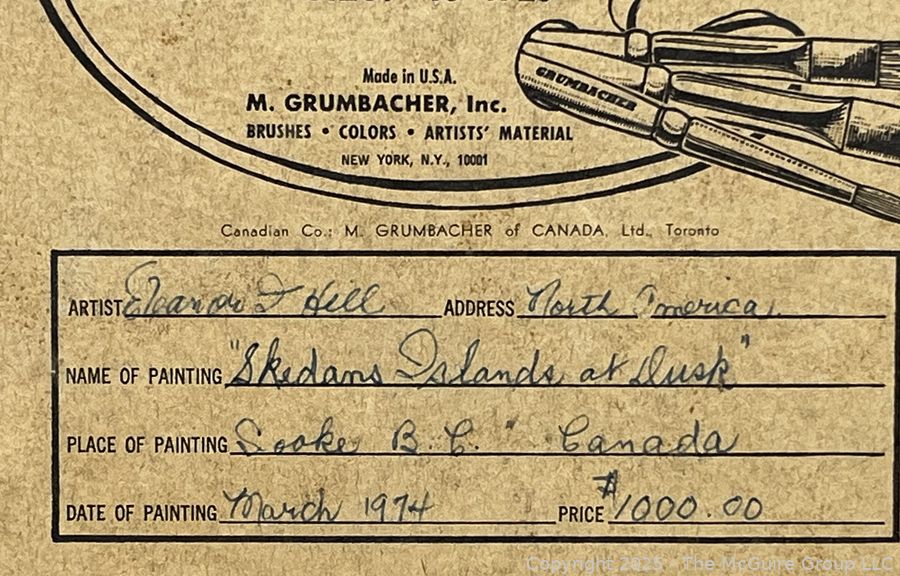 Made in U.S.A.
M. GRUMBACHER, Inc.
BRUSHES • COLORS • ARTISTS' MATERIAL
NEW YORK, N.Y., 10001
GRUMBACHER
Canadian Co.: M. GRUMBACHER of CANADA, Ltd., Toronto
ARTIST Eleanor I Hill ADDRESS North America
NAME OF PAINTING "Skedans Islands at Dusk"
PLACE OF PAINTING Sooke B.C. " Canada
DATE OF PAINTING March 1974 PRICE $1000.00
Copyright 2025 - The McGuire Group LLC